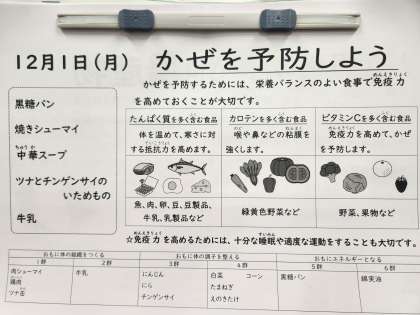 12月1日(月)　かぜを予防しよう
黒糖パン
焼きシューマイ
ちゅうか
中華スープ
ツナとチンゲンサイの
いためもの
牛乳
めんえきりょく
かぜを予防するためには、栄養バランスのよい食事で免疫力
を高めておくことが大切です。
たんぱく質を多く含む食品
体を温めて、寒さに対
する抵抗力を高めます。
魚、肉、卵、豆、豆製品、
牛乳、乳製品など
カロテンを多く含む食品
喉や鼻などの粘膜を
強くします。
緑黄色野菜など
ビタミンCを多く含む食品
免疫力を高めて、かぜ
を予防します。
野菜、果物など
☆免疫力を高めるためには、十分な睡眠や適度な運動をすることも大切です。
おもに体の組織をつくる
おもに体の調子を整える
おもにエネルギーとなる
1群　2群　3群　4群　5群　6群
肉シューマイ
鶏肉
ツナ缶
牛乳
にんじん
にら
チンゲンサイ
白菜　コーン
たまねぎ
えのきたけ
黒糖パン
綿実油